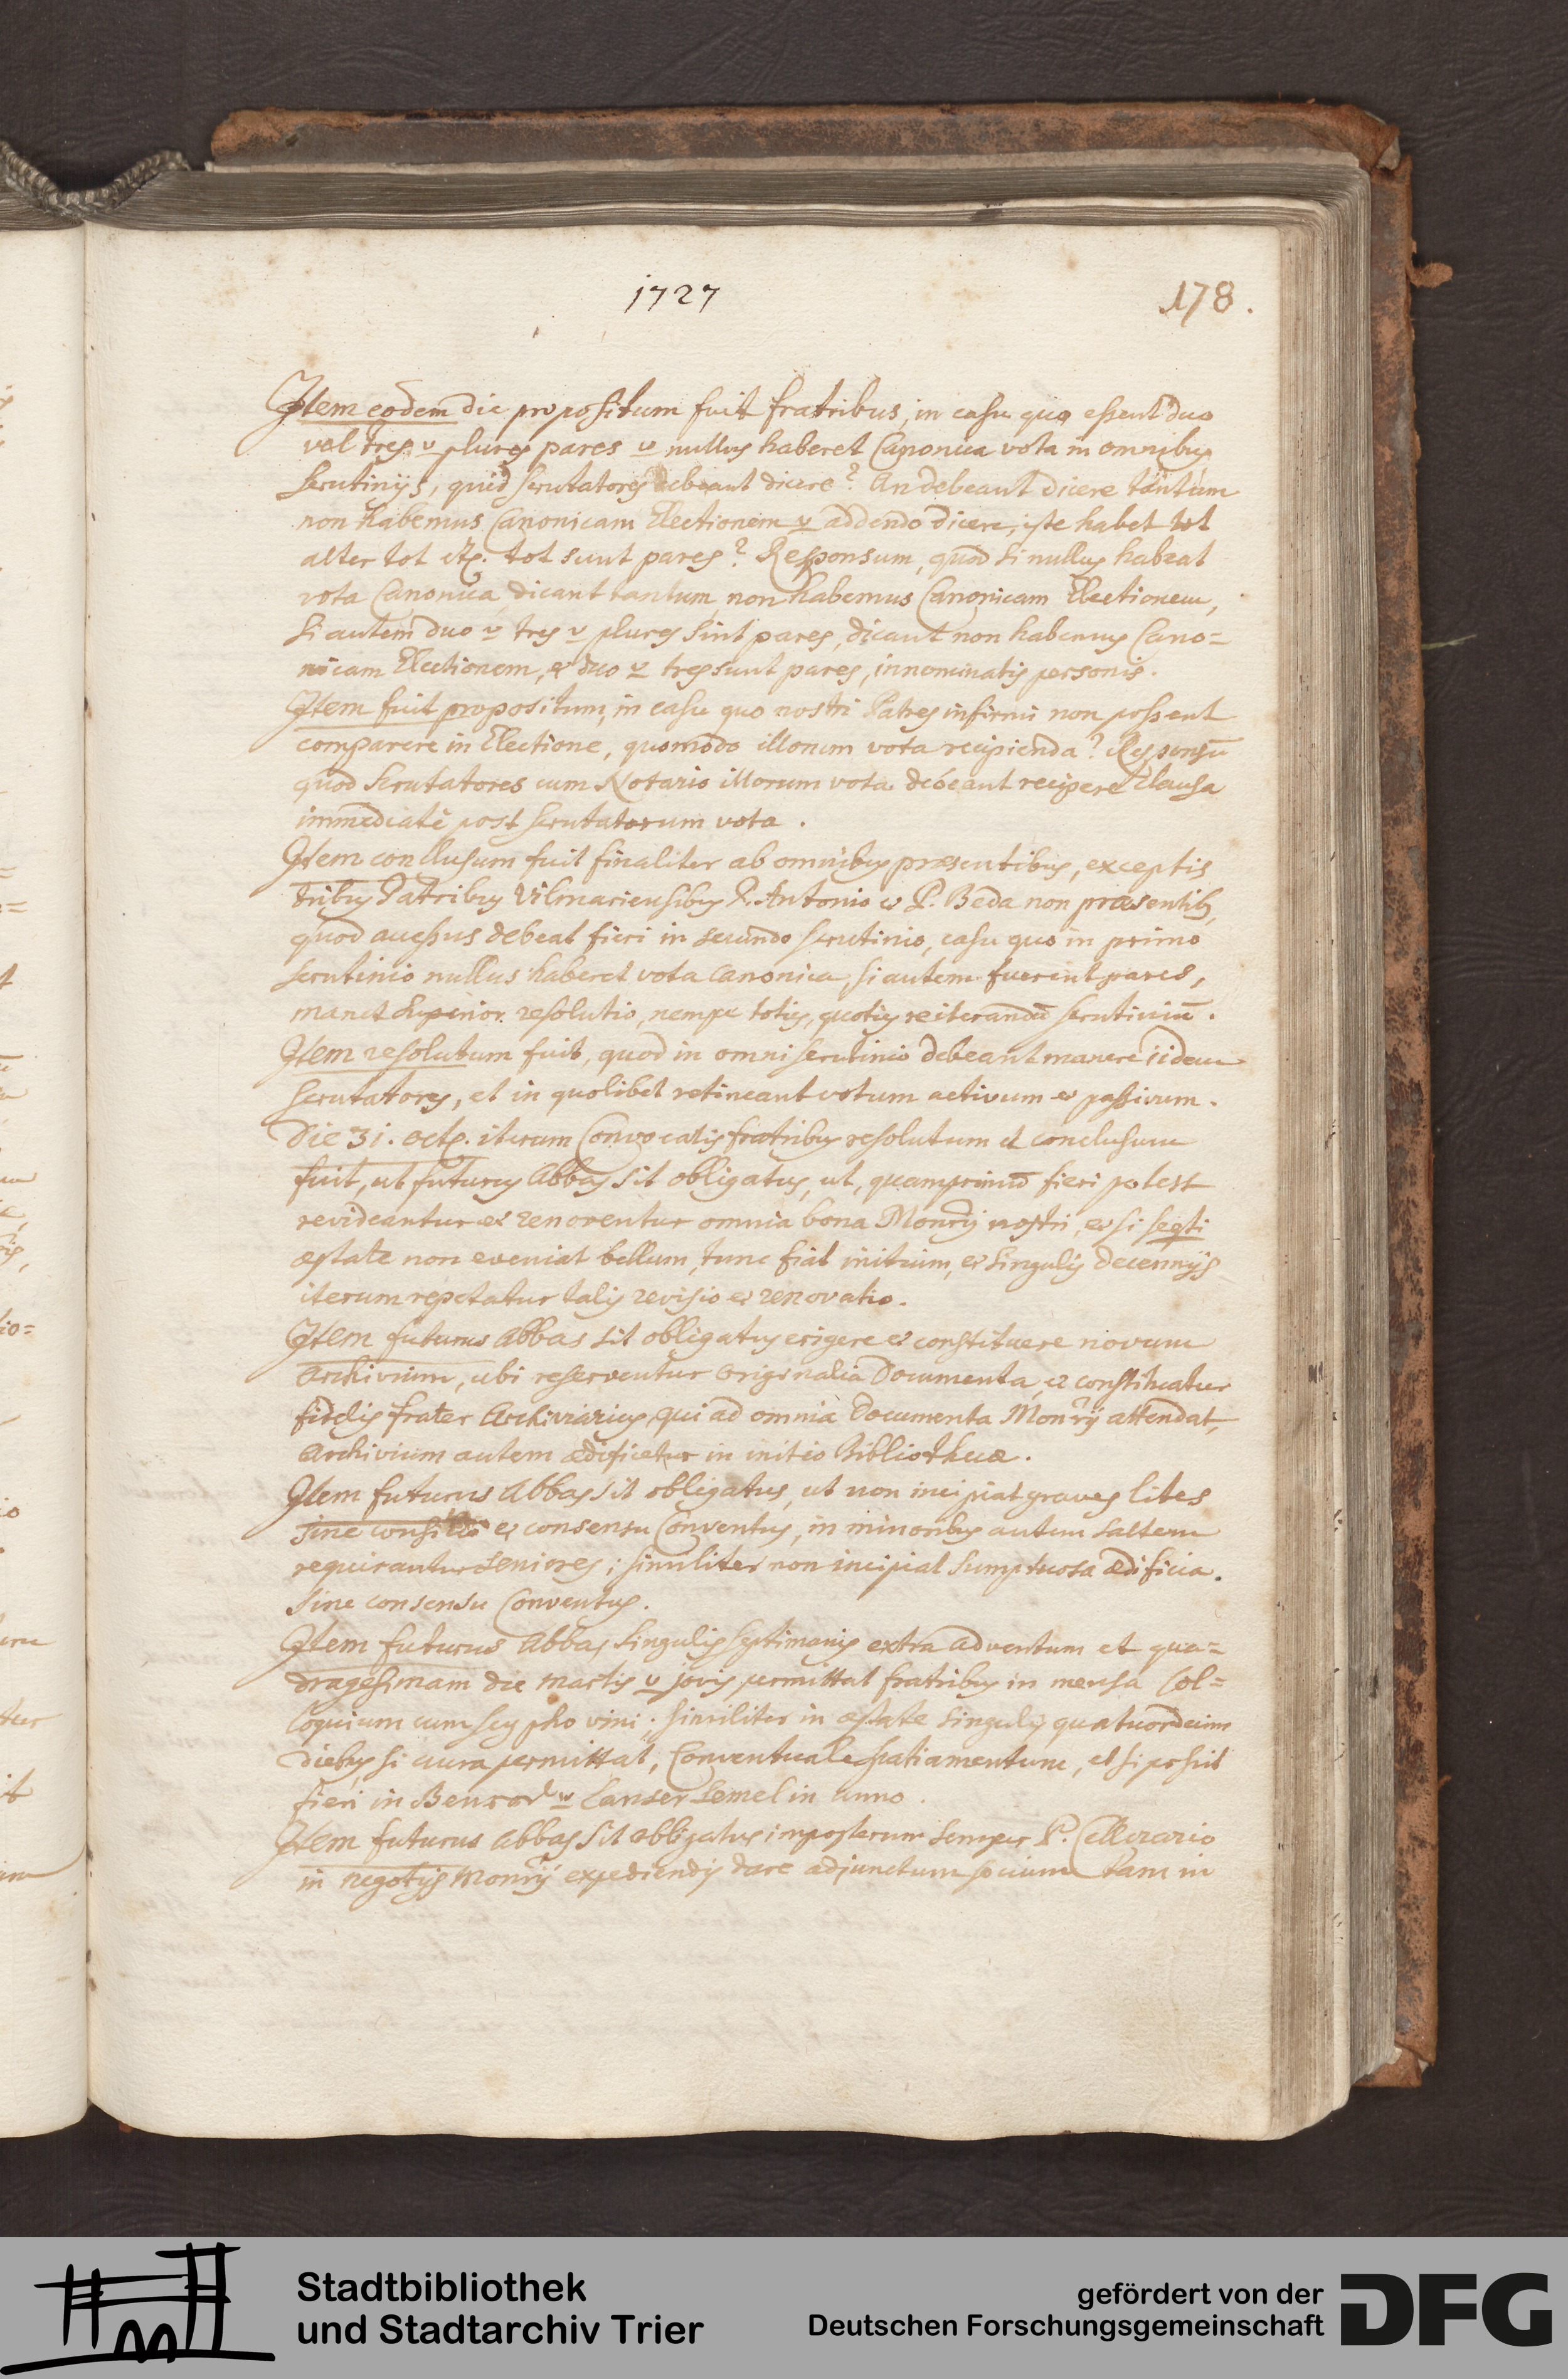 1727
178.
Item eodem die propositum fuit fratribus, in casu quo essent duo
vel tres v plures pares v nullus haberet Canonica vota in omnibus
scrutinijs, quid scrutatores debeant dicere? An debeant dicere tantum
non habemus Canonicam Electionem v addendo dicere, iste habet tot
alter tot etc. tot sunt pares? Responsum, quod si nullus habeat
vota Canonica, dicant tantum, non habemus Canonicam Electionem,
si autem duo v tres v plures sint pares, dicant non habemus Cano=
nicam Electionem, et duo v tres sunt pares, innominatis personis.
Item fuit propositum, in casu quo nostri Patres infirmi non possent
comparere in Electione, quomodo illorum vota recipienda? Responsū
quod scrutatores cum Notario illorum vota debeant recipere clausa
immediatè post scrutatorum vota.
Item conclusum fuit finaliter ab omnibus præsentibus, exceptis
tribus Patribus Vilmariensibus P. Antonio et P. Beda non præsentib,
quod accessus debeat fieri in secundo scrutinio, casu quo in primo
scrutinio nullus haberet vota canonica, si autem fuerint pares,
manet superior resolutio, nempe toties, quoties reiterandū scrutiniū.
Item resolutum fuit, quod in omni scrutinio debeant manere iidem
scrutatores, et in quolibet retineant votum activum et passivum.
Die 31. octb. iterum Convocatis fratribus resolutum et conclusum
fuit, ut futurus Abbas sit obligatus, ut, quamprimū fieri potest
revideantur et renoventur omnia bona Monrij nostri, et si seqti
æstate non eveniat bellum, tunc fiat initium, et singulis decennijs
iterum repetatur talis revisio et renovatio.
Item futurus Abbas sit obligatus erigere et constituere novum
Archivium, ubi reserventur originalia Documenta, et constituatur
fidelis frater Archivarius, qui ad omnia Documenta Monrij attendat,
Archivium autem ædificetur in initio Bibliothecæ.
Item futurus Abbas sit obligatus, ut non incipiat graves lites
sine consilio et consensu Conventus, in minoribus autem saltem
requirantur seniores; similiter non incipiat sumptuosa ædificia
sine consensu Conventus.
Item futurus Abbas singulis septimanis extra adventum et qua=
dragesimam die Martis v jovis permittat fratribus in mensa Col=
loquium cum scypho vini; similiter in æstate singulis quatuordecim
diebus si aura permittat, Conventuale spatiamentum, et si possit
fieri in Benrad v Lanser semel in anno.
Item futurus Abbas sit obligatus imposterum semper P. Cellerario
in negotijs Monrij expediendis dare adjunctum socium tam in
Stadtbibliothek
und Stadtarchiv Trier
gefördert von der
Deutschen Forschungsgemeinschaft
DFG